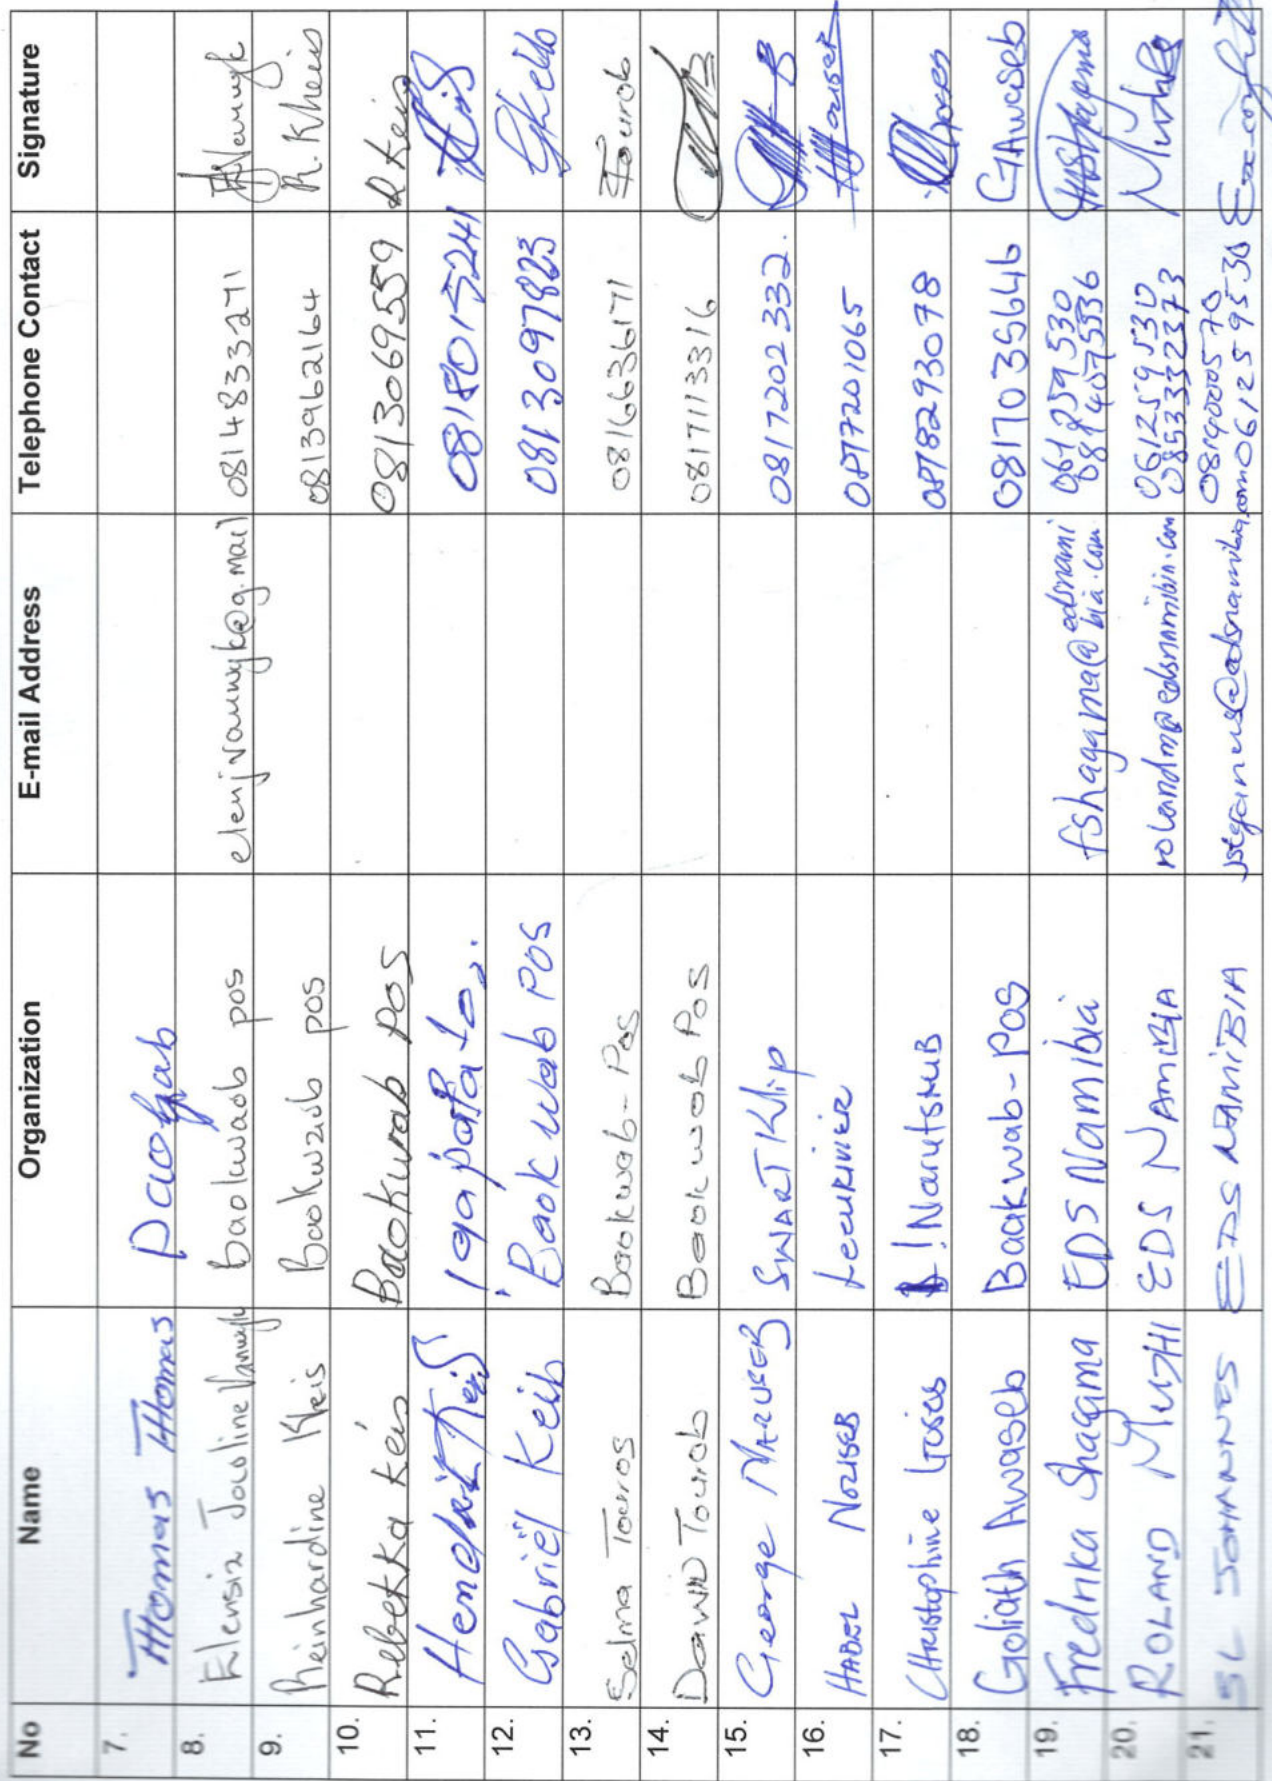 No Name Organization E-mail Address Telephone Contact Signature
7. Thomas Thomas
8. Elensia Jacoline Vanwyk baokwaob pos elenjvanwyk@g.mail 0814833271
9. Reinhardine Kheis Baokwaib pos 0813962164 R. Kheis
10. Rebekka Keis Baokwab pos 0813069559 R Keis
11. 0818015241
12. Gabriël Keib Baokwab POS 0813097823
13. Selma Touros Baokwab-Pos 0816636171 Tourob
14. Dawid Tourob Baokwab Pos 0817113316
15. George Naruseb Swart Klip 0817202332.
16. Habel Noriseb 0817201065
17. Christophine Goses !Narutskub 0817829 3078
18. Goliath Awaseb Baakwab-Pos 0817035646 GAwaseb
19. Fredrika Shagama EDS Namibia fshagama@edsnami
bia.com 061259530
0814075536
20. Roland Mushi EDS Namibia rolandm@edsnamibia.com 061259530
0853332373 Mushi
21. SL Johannes EDS NAMiBIA 0814000570
061259530